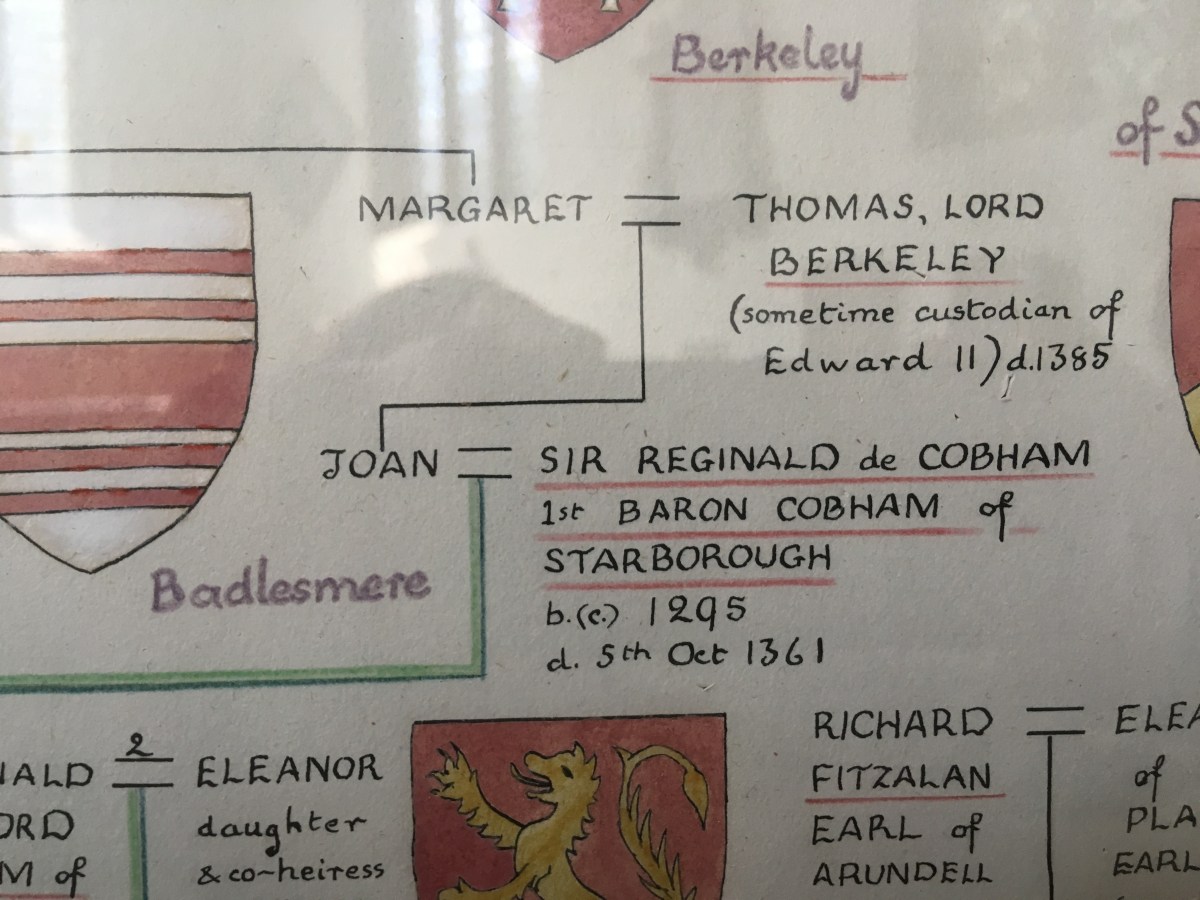 Berkeley
of S
MARGARET = THOMAS, LORD
BERKELEY
(sometime custodian of
Edward II) d.1385
JOAN = SIR REGINALD de COBHAM
1st BARON COBHAM of
STARBOROUGH
b.(c.) 1295
d. 5th Oct 1361
Badlesmere
NALD
ORD
M of
2
ELEANOR
daughter
& co-heiress
RICHARD
FITZALAN
EARL of
ARUNDELL
ELEA
of
PLA
EARL